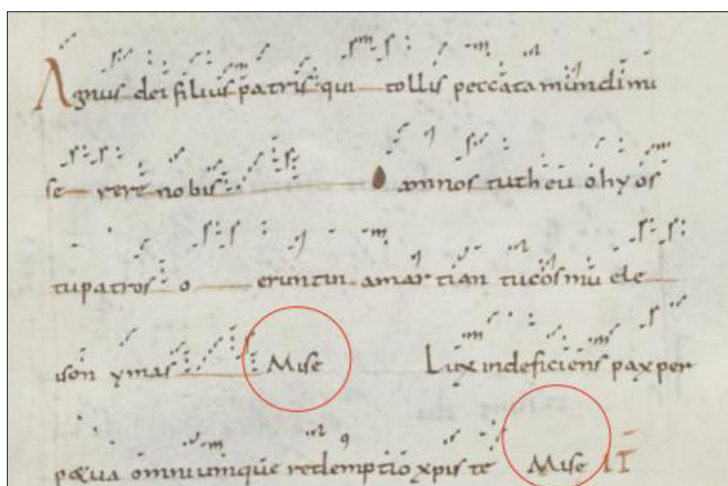 Agnus dei filius patris qui tollis peccata mundi mi
se rere nobis O amnos tutheu o hyos
tu patros o eruntun amartian tu cosmu ele
ison ymas Mise Lux indeficiens pax per
petua omniumque redemptio xpiste Mise II